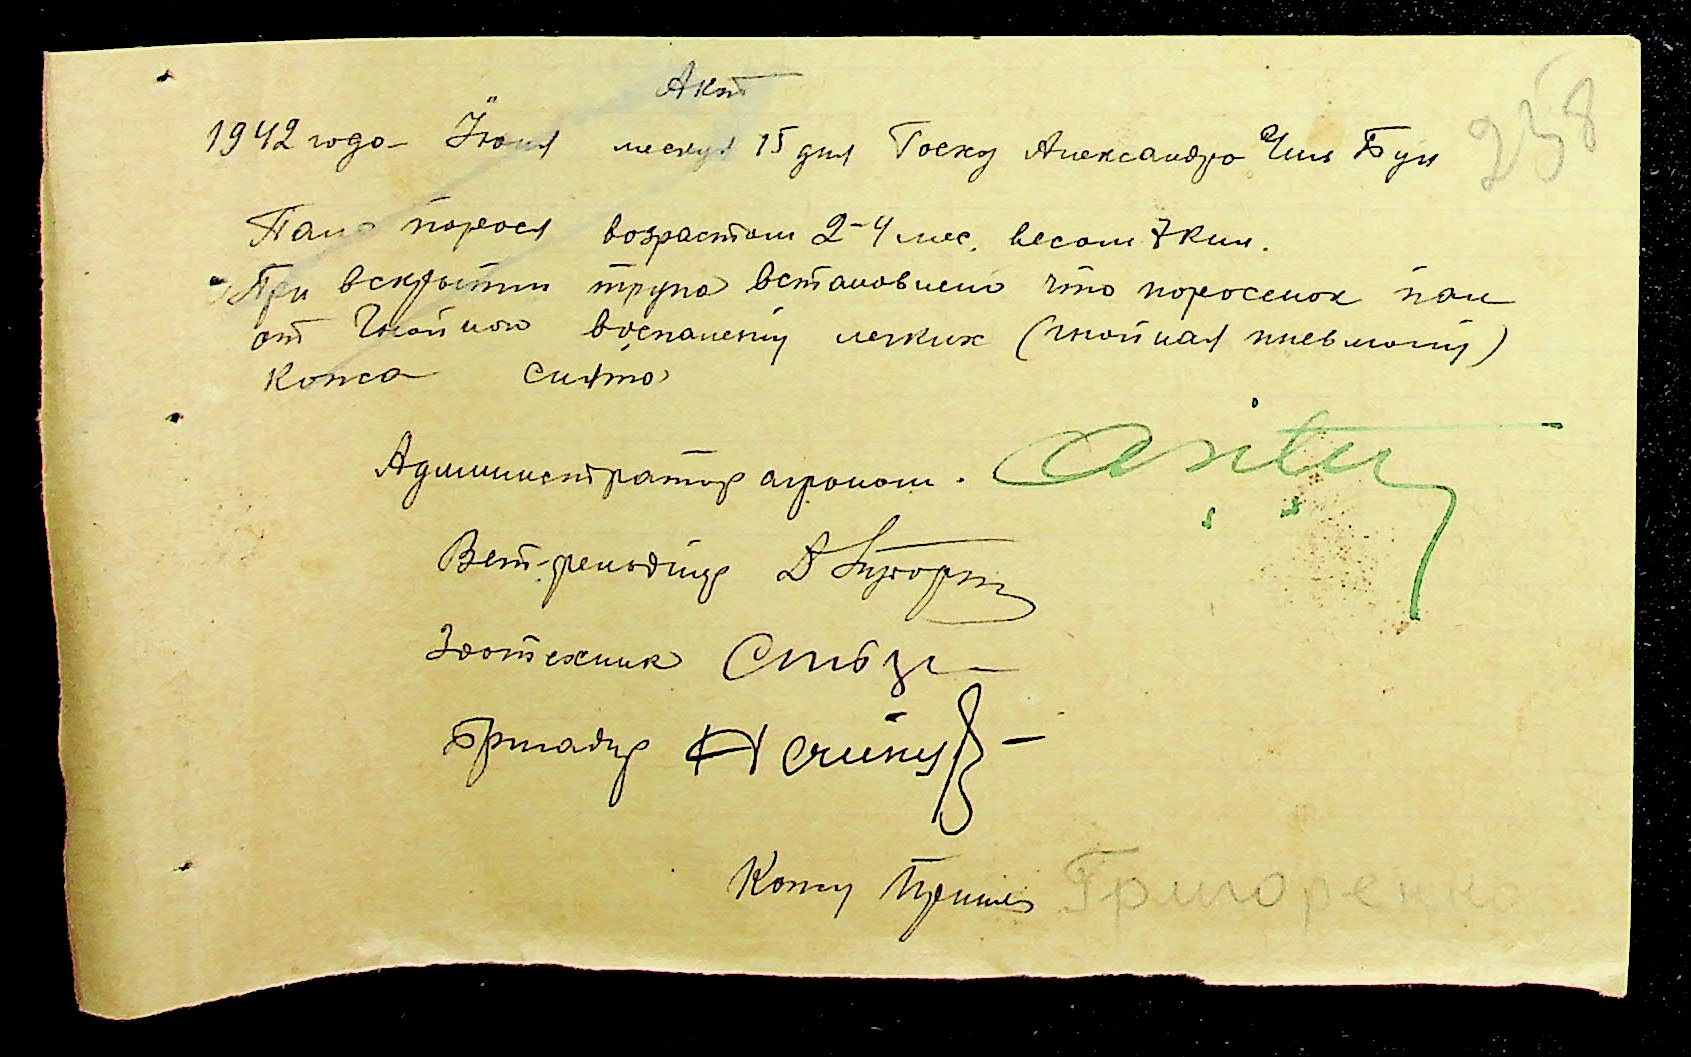 Акт
258
1942 года Июня месяца 15 дня Госхоз Александро
Пало порося возрастом 2-4 мес. весом 7 кил.
При вскрытии трупа встановлено что поросенок пал
от Гнойного воспаления легких (гнойная пневмонія)
Кожа снята
Администратор агроном.
Вет-фельдшер
Зоотехник
Бригадир
Кожу Принял Григоренко